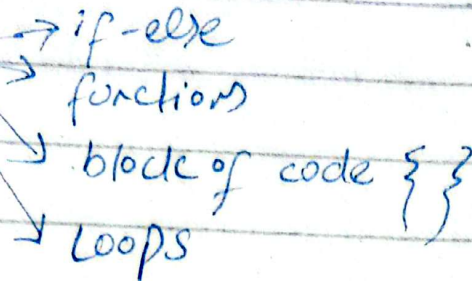 → if-else
→ functions
→ block of code { }
→ Loops